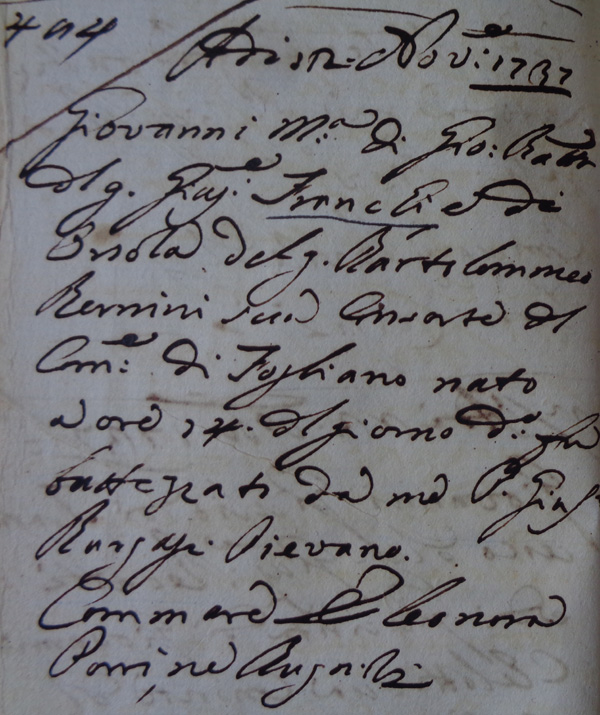 Adi 12: Nov.e 1737
Giovanni M.a di Gio: Batta
dl q. Gius.e Franchi e di
Orsola del q. Bartolommeo
Bernini sua Consorte dl
Com.e di Fogliano nato
a ore 14. dl giorno d.o fu
battezzato da me P. Gius.
Pievano.
Commare Eleonora